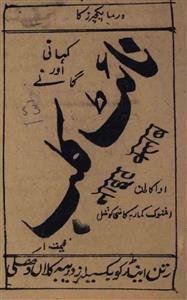 ورما پکچرز کا
کہانی
اور
گانے
نائٹ کلب
اداکاران
اشوک کمار۔ کامنی کوشل
قیمت ۱ر
رتن اینڈ کو بک سیلرز دریبہ کلاں دھلی